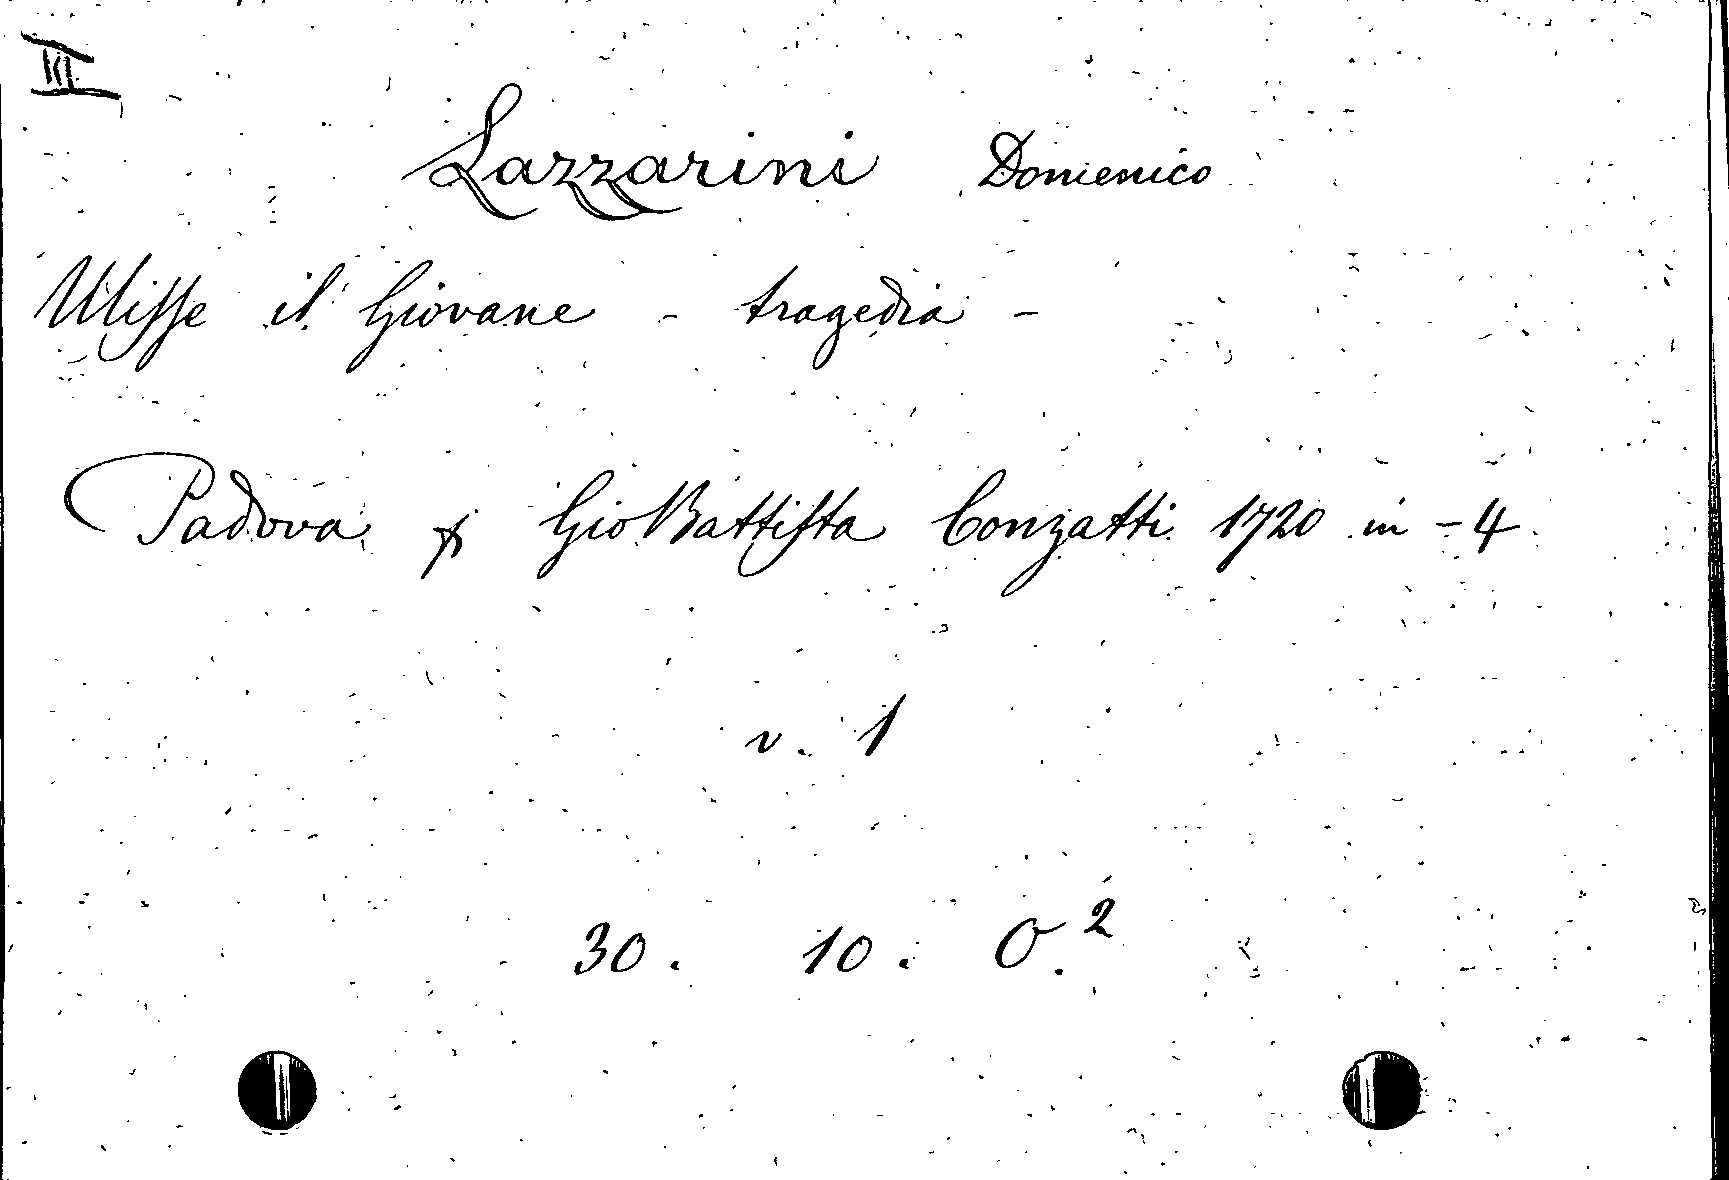 III
Lazzarini Domenico
Ulisse il Giovane - tragedia -
Padova p Gio Battista Conzatti 1720 in-4
v. 1
30. 10. O.2